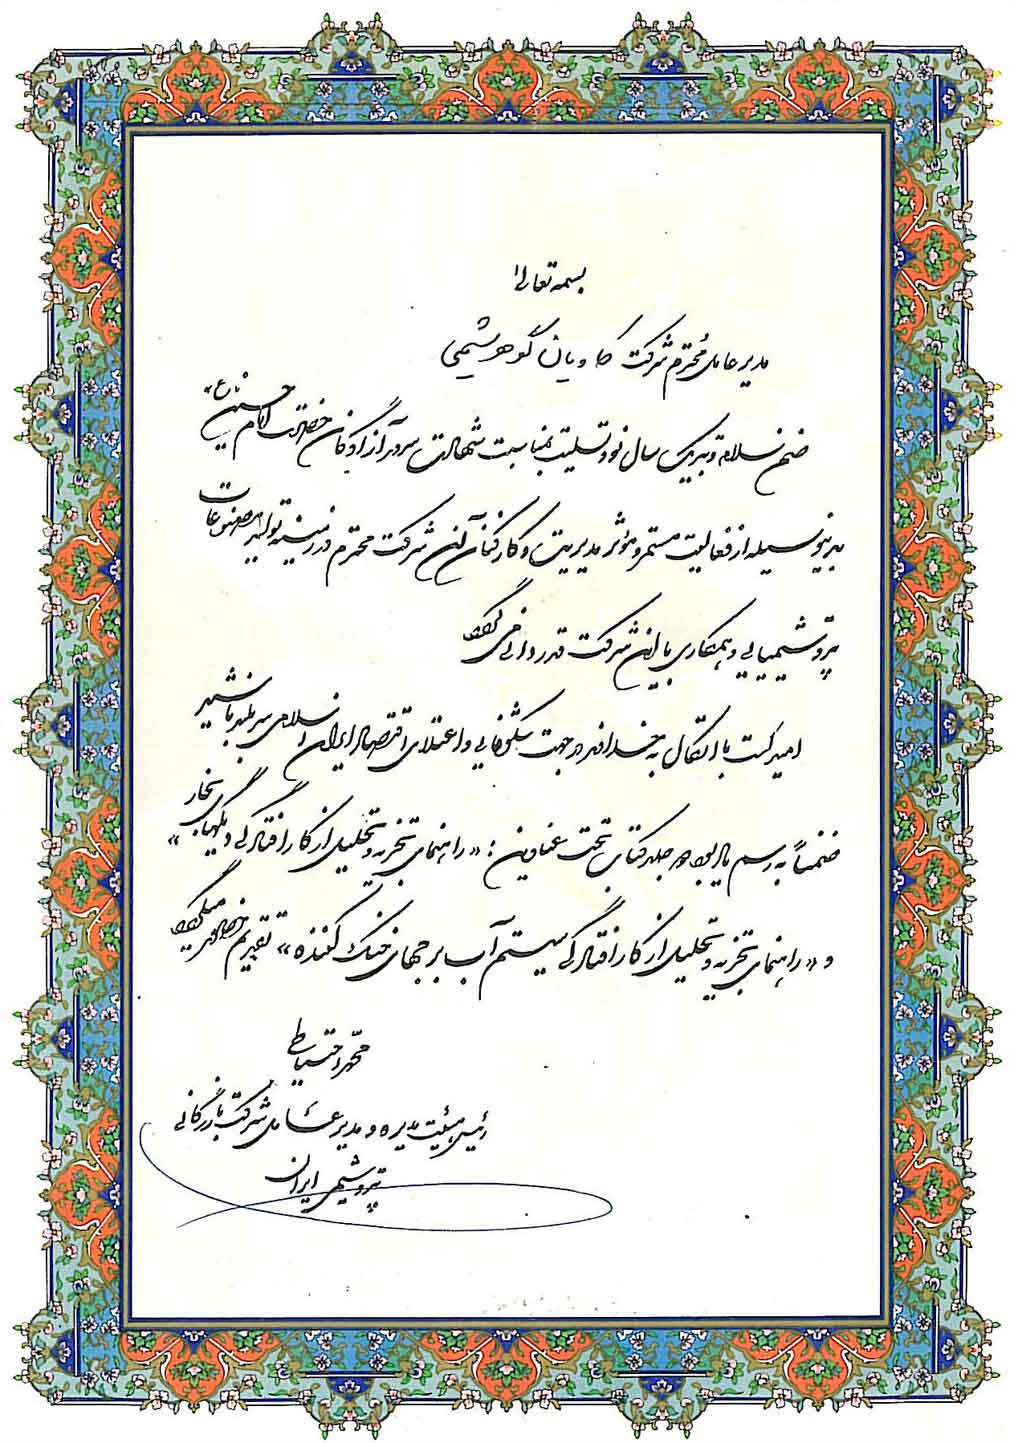 بسمه تعالی
مدیر عامل محترم شرکت کاویان گوهر شیمی
ضمن سلام و تبریک سال نو و تسلیت بمناسبت شهادت سرور آزادگان حضرت امام حسین «ع»
بدینوسیله از فعالیت مستمر و مؤثر مدیریت و کارکنان آن شرکت محترم در زمینه تولید مصنوعات
پتروشیمیایی و همکاری با این شرکت قدردانی می گردد
امید است با اتکال به خداوند در جهت شکوفایی و اعتلای اقتصاد ایران اسلامی سربلند باشید
ضمناً به رسم یادبود دو جلد کتاب تحت عناوین : «راهنمای تجزیه و تحلیل از کار افتادگی دیگهای بخار»
و «راهنمای تجزیه و تحلیل از کار افتادگی سیستم آب برجهای خنک کننده» تقدیم حضورتان میگردد
محمد احتیاطی
رئیس هیئت مدیره و مدیر عامل شرکت بازرگانی
پتروشیمی ایران